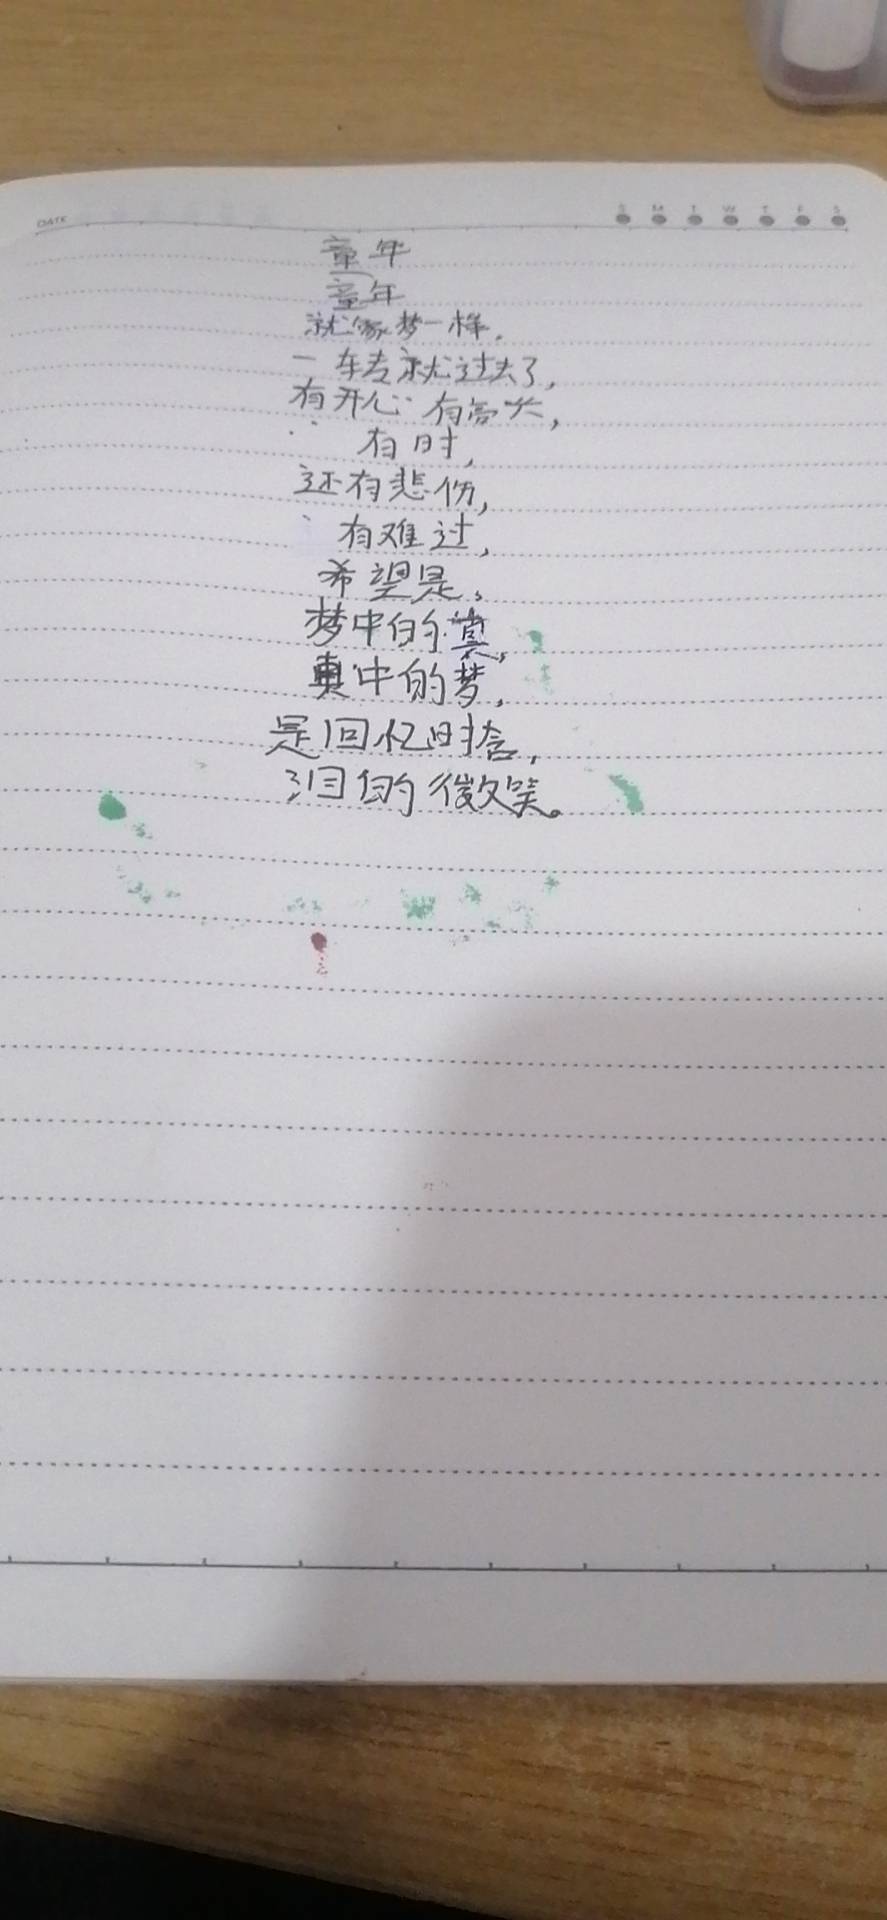 DATE S M T W T F S
童年
童年
就像梦一样，
一转就过去了，
有开心 有
有时，
还有悲伤，
有难过，
希望是，
梦中的真，
真中的梦，
是回忆时含，
泪的微笑。